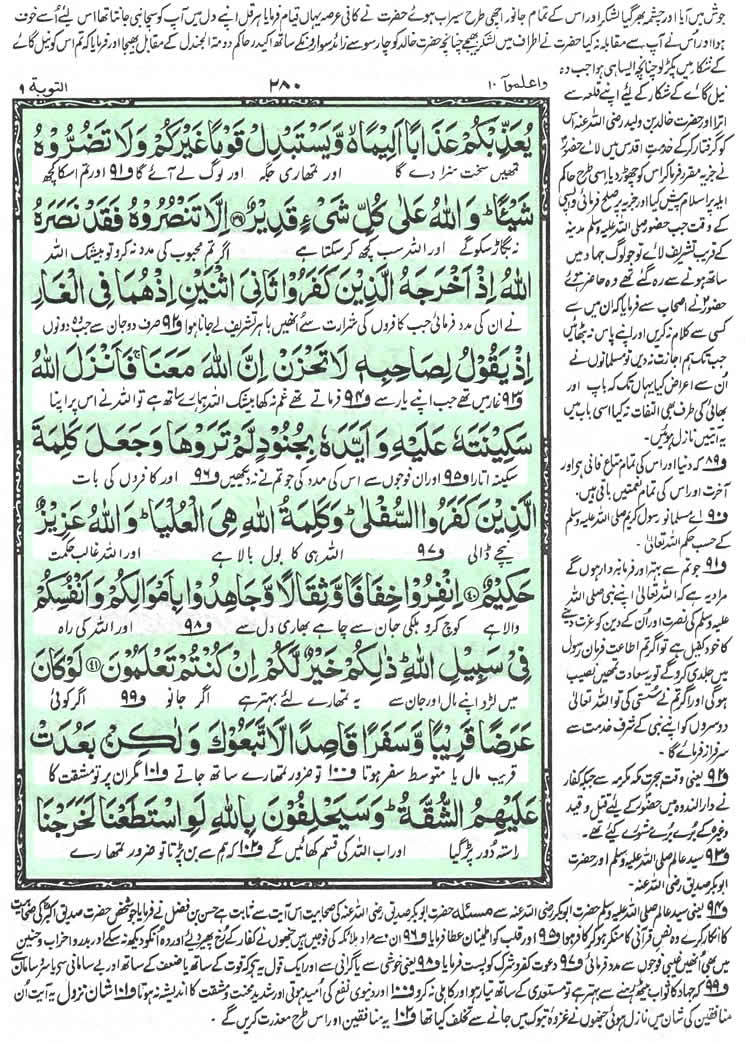 جوش میں آیا اور چشمہ بھر گیا لشکر اور اس کے تمام جانور اچھی طرح سیراب ہوئے حضرت نے کافی عرصہ یہاں قیام فرمایا ہرقل اپنے دل میں آپ کو سچا نبی جانتا تھا اس لیے اُسے خوف
ہوا اور اُس نے آپ سے مقابلہ نہ کیا حضرت نے اطراف میں لشکر بھیجے چنانچہ حضرت خالد کو چار سو سے زائد سواروں کے ساتھ اکیدر حاکم دومۃ الجندل کے مقابل بھیجا اور فرمایا کہ تم اس کو نیل گائے
کے شکار میں پکڑ لو چنانچہ ایسا ہی ہوا جب وہ
نیل گائے کے شکار کے لئے اپنے قلعہ سے
اترا اور حضرت خالد بن ولید رضی اللہ عنہ اس
کو گرفتار کر کے خدمتِ اقدس میں لائے حضور
نے جزیہ مقرر فرما کر اس کو چھوڑ دیا اسی طرح حاکم
ایلہ پر اسلام پیش کیا اور جزیہ پر صلح فرمائی واپسی
کے وقت جب حضور صلی اللہ علیہ وسلم مدینہ
کے قریب تشریف لائے تو جو لوگ جہاد میں
ساتھ ہونے سے رہ گئے تھے وہ حاضر ہوئے
حضور نے اصحاب سے فرمایا کہ ان میں سے
کسی سے کلام نہ کریں اور اپنے پاس نہ بٹھائیں
جب تک ہم اجازت نہ دیں تو مسلمانوں نے
اُن سے اعراض کیا یہاں تک کہ باپ اور
بھائی کی طرف بھی التفات نہ کیا اسی باب میں
یہ آیتیں نازل ہوئیں۔
و۸۹ کہ دنیا اور اس کی تمام متاع فانی ہے اور
آخرت اور اس کی تمام نعمتیں باقی ہیں۔
و۹۰ اے مسلمانو رسول کریم صلی اللہ علیہ وسلم
کے حسب حکم اللہ تعالیٰ۔
و۹۱ جو تم سے بہتر اور فرمانبردار ہوں گے
مراد یہ ہے کہ اللہ تعالیٰ اپنے نبی صلی اللہ
علیہ وسلم کی نصرت اور اُن کے دین کو عزت دینے
کا خود کفیل ہے تو اگر تم اطاعت فرمان رسول
میں جلدی کرو گے تو یہ سعادت تمہیں نصیب
ہوگی اور اگر تم نے سستی کی تو اللہ تعالیٰ
دوسروں کو اپنے نبی کے شرف خدمت سے
سرفراز فرمائے گا۔
و۹۲ یعنی وقت ہجرت مکہ مکرمہ سے جبکہ کفار
نے دار الندوہ میں حضور کے لئے قتل و قید
وغیرہ کے بُرے بُرے مشورے کئے تھے۔
و۹۳ سید عالم صلی اللہ علیہ وسلم اور حضرت
ابوبکر صدیق رضی اللہ عنہ۔
واعلموآ ۱۰
۲۸۰
التوبة ۹
يُعَذِّبْكُمْ عَذَابًا اَلِيْمًا ۙ وَّيَسْتَبْدِلْ قَوْمًا غَيْرَكُمْ وَلَا تَضُرُّوْهُ
تمہیں سخت سزا دے گا اور تمہاری جگہ اور لوگ لے آئے گا و۹۱ اور تم اسکا کچھ
شَيْـًٔا ؕ وَاللّٰهُ عَلٰى كُلِّ شَىْءٍ قَدِيْرٌ ﴿۳۹﴾ اِلَّا تَنْصُرُوْهُ فَقَدْ نَصَرَهُ
نہ بگاڑ سکو گے اور اللہ سب کچھ کر سکتا ہے اگر تم محبوب کی مدد نہ کرو تو بیشک اللہ
اللّٰهُ اِذْ اَخْرَجَهُ الَّذِيْنَ كَفَرُوْا ثَانِىَ اثْنَيْنِ اِذْ هُمَا فِى الْغَارِ
نے ان کی مدد فرمائی جب کافروں کی شرارت سے انھیں باہر تشریف لے جانا ہوا و۹۲ صرف دو جان سے جب وہ دونوں
اِذْ يَقُوْلُ لِصَاحِبِهٖ لَا تَحْزَنْ اِنَّ اللّٰهَ مَعَنَا ۚ فَاَنْزَلَ اللّٰهُ
و۹۳ غار میں تھے جب اپنے یار سے و۹۴ فرماتے تھے غم نہ کھا بیشک اللہ ہمارے ساتھ ہے تو اللہ نے اس پر اپنا
سَكِيْنَتَهٗ عَلَيْهِ وَاَيَّدَهٗ بِجُنُوْدٍ لَّمْ تَرَوْهَا وَجَعَلَ كَلِمَةَ
سکینہ اتارا و۹۵ اور ان فوجوں سے اس کی مدد کی جو تم نے نہ دیکھیں و۹۶ اور کافروں کی بات
الَّذِيْنَ كَفَرُوا السُّفْلٰى ؕ وَكَلِمَةُ اللّٰهِ هِىَ الْعُلْيَا ؕ وَاللّٰهُ عَزِيْزٌ
نیچے ڈالی و۹۷ اللہ ہی کا بول بالا ہے اور اللہ غالب حکمت
حَكِيْمٌ ﴿۴۰﴾ اِنْفِرُوْا خِفَافًا وَّثِقَالًا وَّجَاهِدُوْا بِاَمْوَالِكُمْ وَاَنْفُسِكُمْ
والا ہے کوچ کرو ہلکی جان سے چاہے بھاری دل سے و۹۸ اور اللہ کی راہ
فِىْ سَبِيْلِ اللّٰهِ ؕ ذٰلِكُمْ خَيْرٌ لَّكُمْ اِنْ كُنْتُمْ تَعْلَمُوْنَ ﴿۴۱﴾ لَوْ كَانَ
میں لڑو اپنے مال اور جان سے یہ تمہارے لئے بہتر ہے اگر جانو و۹۹ اگر کوئی
عَرَضًا قَرِيْبًا وَّسَفَرًا قَاصِدًا لَّاتَّبَعُوْكَ وَلٰكِنْۢ بَعُدَتْ
قریب مال یا متوسط سفر ہوتا و۱۰۰ تو ضرور تمہارے ساتھ جاتے و۱۰۱ مگر ان پر تو مشقت کا
عَلَيْهِمُ الشُّقَّةُ ؕ وَسَيَحْلِفُوْنَ بِاللّٰهِ لَوِ اسْتَطَعْنَا لَخَرَجْنَا
راستہ دور پڑ گیا اور اب اللہ کی قسم کھائیں گے و۱۰۲ کہ ہم سے بن پڑتا تو ضرور تمہارے
و۹۴ یعنی سید عالم صلی اللہ علیہ وسلم حضرت ابوبکر صدیق رضی اللہ عنہ سے مسئلہ حضرت ابوبکر صدیق رضی اللہ عنہ کی صحابیت اس آیت سے ثابت ہے حسن بن فضل نے فرمایا جو شخص حضرت صدیق اکبر کی صحابیت
کا انکار کرے وہ نص قرآنی کا منکر ہو کر کافر ہوا و۹۵ اور قلب کو اطمینان عطا فرمایا و۹۶ ان سے مراد ملائکہ کی فوجیں ہیں جنھوں نے کفار کے رُخ پھیر دیئے اور وہ اُنکو دیکھ نہ سکے اور بدر و احزاب و حنین
میں بھی انھیں غیبی فوجوں سے مدد فرمائی و۹۷ دعوت کفر و شرک کو پست فرمایا و۹۸ یعنی خوشی سے یا گرانی سے اور ایک قول یہ ہے کہ قوت کے ساتھ یا ضعف کے ساتھ اور بے سامانی سے یا سر و سامان سے
و۹۹ کہ جہاد کا ثواب بیٹھ رہنے سے بہتر ہے تو مستعدی کے ساتھ تیار ہو اور کاہلی نہ کرو و۱۰۰ اور دنیوی نفع کی امید ہوتی اور شدید محنت و مشقت کا اندیشہ نہ ہوتا و۱۰۱ شان نزول یہ آیت اُن
منافقین کی شان میں نازل ہوئی جنھوں نے غزوہ تبوک میں جانے سے تخلف کیا تھا و۱۰۲ یہ منافقین اور اس طرح معذرت کریں گے۔